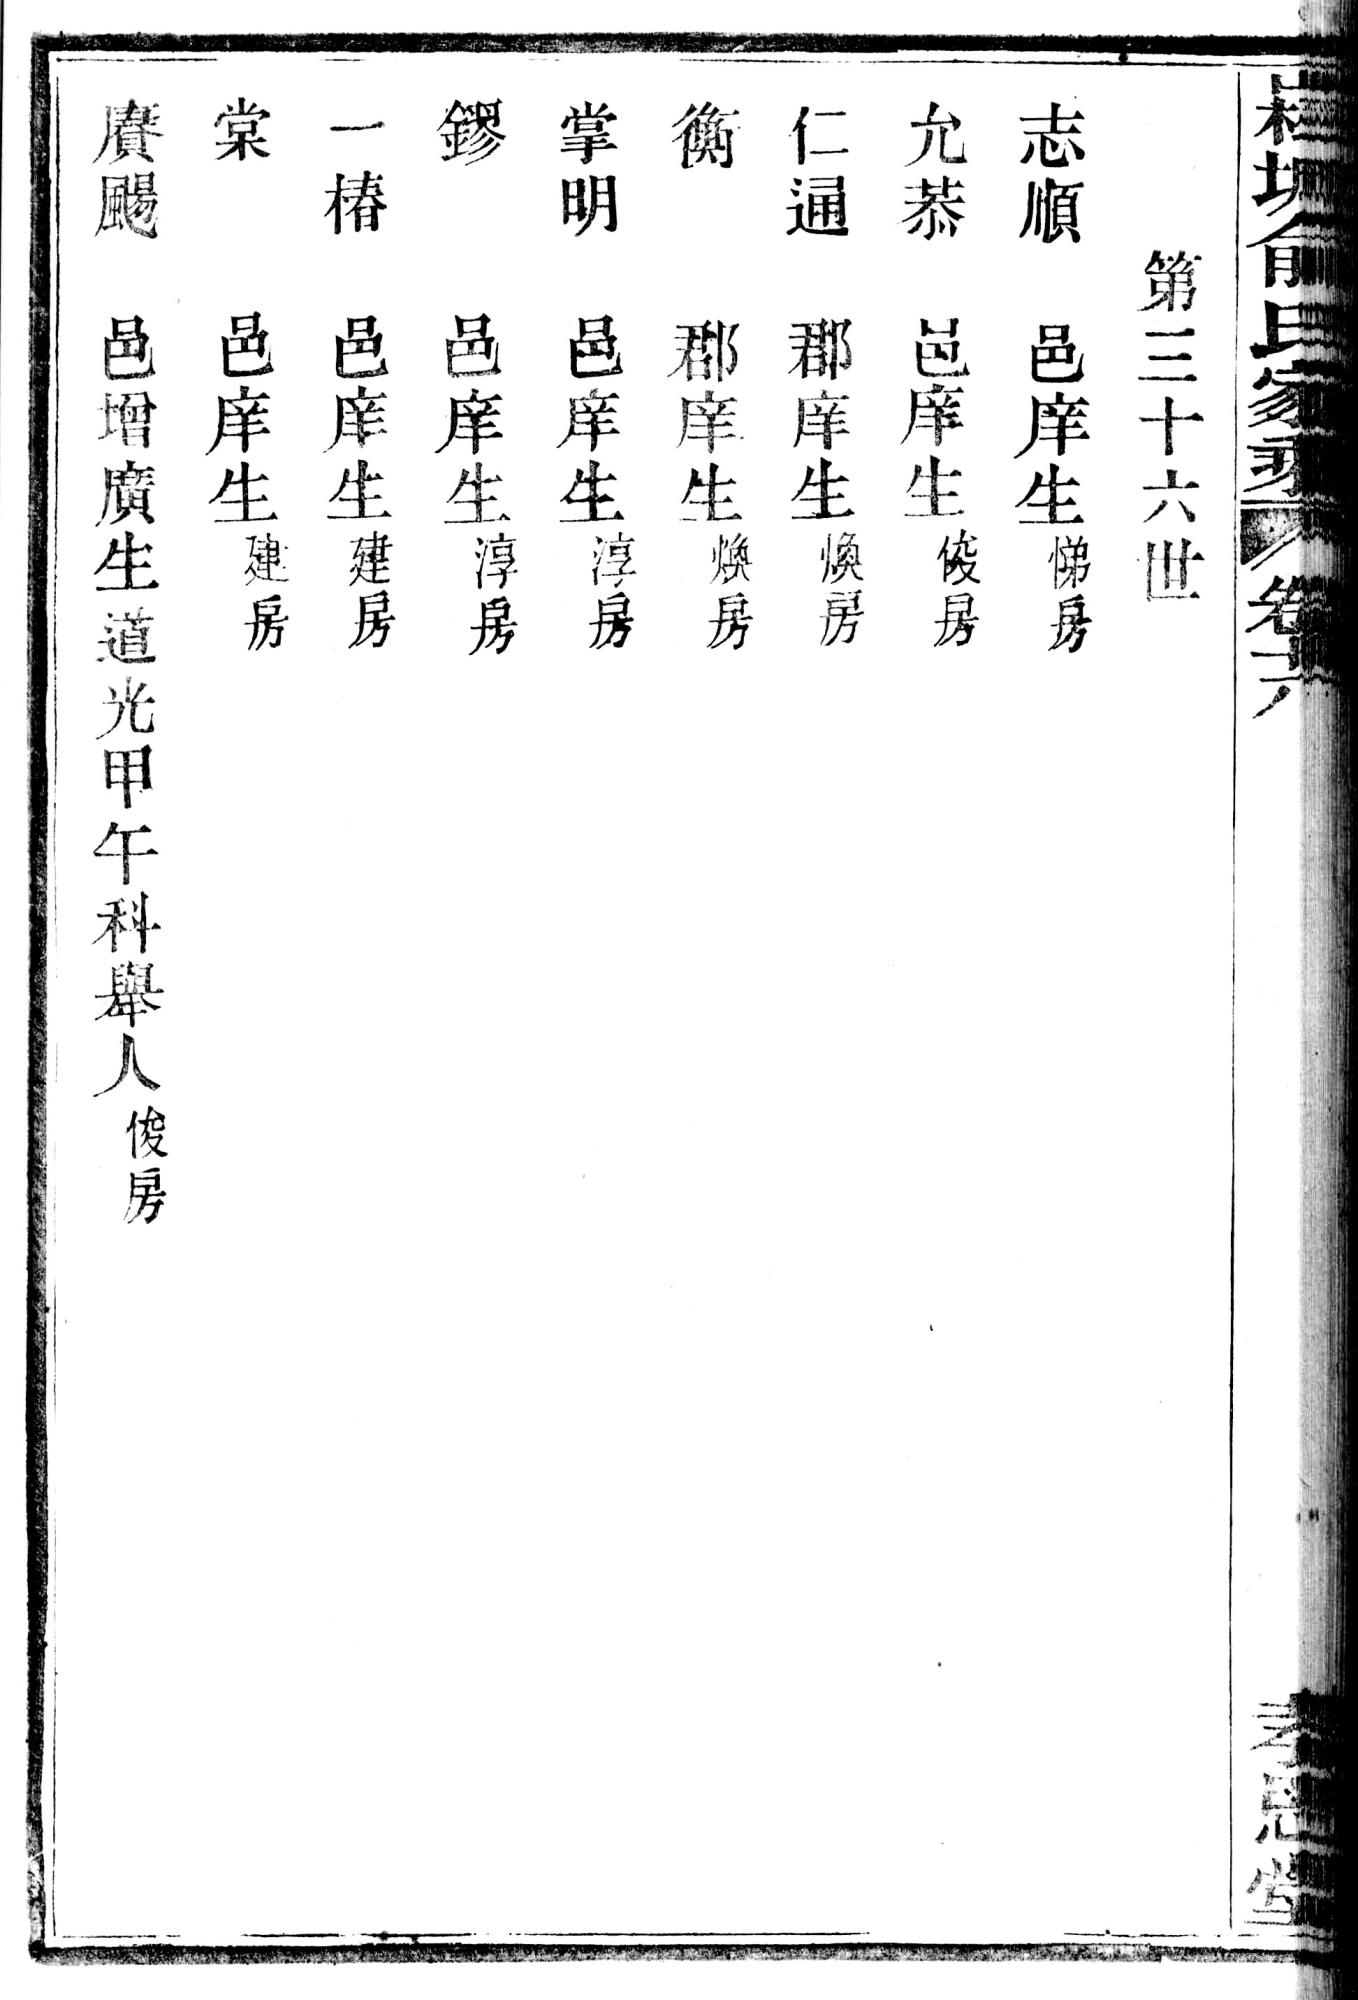 俞氏家乘 卷六
第三十六世
志順 邑庠生 悌房
允恭 邑庠生 俊房
仁通 郡庠生 煥房
衡 郡庠生 煥房
掌明 邑庠生 淳房
鏐 邑庠生 淳房
一椿 邑庠生 建房
棠 邑庠生 建房
賡颺 邑增廣生道光甲午科舉人 俊房